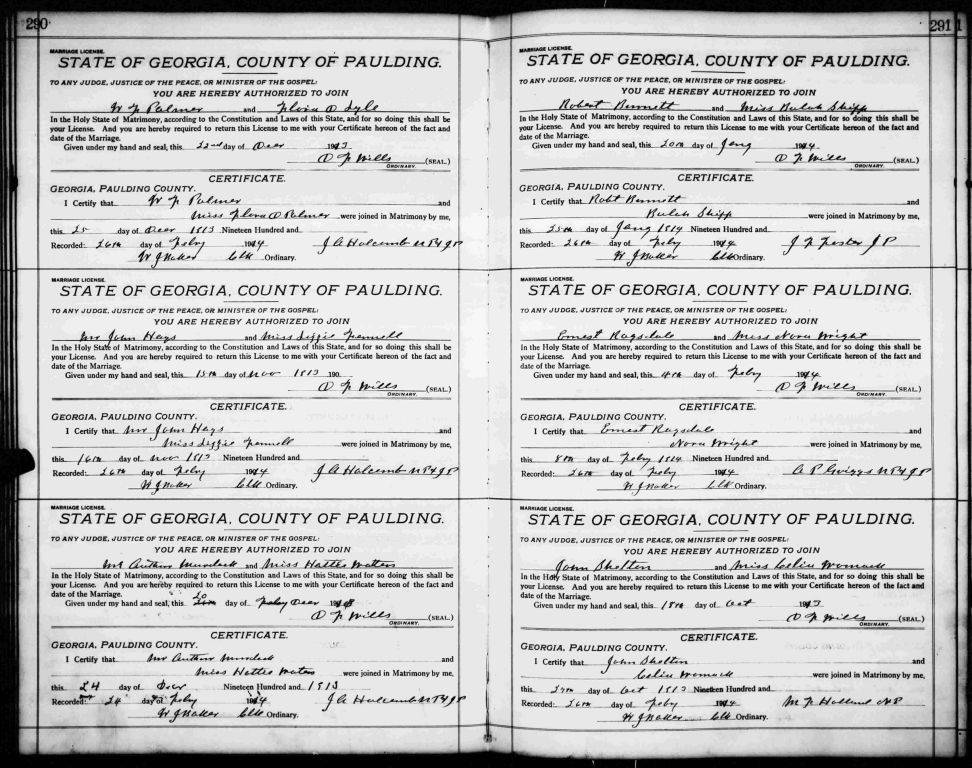 290
MARRIAGE LICENSE.
STATE OF GEORGIA, COUNTY OF PAULDING.
TO ANY JUDGE, JUSTICE OF THE PEACE, OR MINISTER OF THE GOSPEL:
YOU ARE HEREBY AUTHORIZED TO JOIN
W F Palmer and Flora O Lyle
In the Holy State of Matrimony, according to the Constitution and Laws of this State, and for so doing this shall be
your License. And you are hereby required to return this License to me with your Certificate hereon of the fact and
date of the Marriage.
Given under my hand and seal, this 22nd day of Decr 1913
O F Wills (SEAL.)
ORDINARY.
CERTIFICATE.
GEORGIA, PAULDING COUNTY.
I Certify that W F Palmer and
Miss Flora O Palmer were joined in Matrimony by me,
this 25 day of Decr 1913 Nineteen Hundred and
Recorded: 26th day of Feby 1914 J A Holcomb N P & J P
W J Baker Clk Ordinary.
MARRIAGE LICENSE.
STATE OF GEORGIA, COUNTY OF PAULDING.
TO ANY JUDGE, JUSTICE OF THE PEACE, OR MINISTER OF THE GOSPEL:
YOU ARE HEREBY AUTHORIZED TO JOIN
Mr John Hays and Miss Lizzie Fennell
In the Holy State of Matrimony, according to the Constitution and Laws of this State, and for so doing this shall be
your License. And you are hereby required to return this License to me with your Certificate hereon of the fact and
date of the Marriage.
Given under my hand and seal, this 15th day of Nov 1913 190
O F Wills (SEAL.)
ORDINARY.
CERTIFICATE.
GEORGIA, PAULDING COUNTY.
I Certify that Mr John Hays and
Miss Lizzie Fennell were joined in Matrimony by me,
this 16th day of Nov 1913 Nineteen Hundred and
Recorded: 26th day of Feby 1914 J A Holcomb N P & J P
W J Baker Clk Ordinary.
MARRIAGE LICENSE.
STATE OF GEORGIA, COUNTY OF PAULDING.
TO ANY JUDGE, JUSTICE OF THE PEACE, OR MINISTER OF THE GOSPEL:
YOU ARE HEREBY AUTHORIZED TO JOIN
Mr Arthur Murdock and Miss Hattes Waters
In the Holy State of Matrimony, according to the Constitution and Laws of this State, and for so doing this shall be
your License. And you are hereby required to return this License to me with your Certificate hereon of the fact and
date of the Marriage.
Given under my hand and seal, this 20 day of Feby Decr 1913
O F Wills (SEAL.)
ORDINARY.
CERTIFICATE.
GEORGIA, PAULDING COUNTY.
I Certify that Mr Arthur Murdock and
Miss Hattes Waters were joined in Matrimony by me,
this 24 day of Decr Nineteen Hundred and 1913
Recorded: 26 day of Feby 1914 J A Holcomb N P & J P
W J Baker Clk Ordinary.
291
MARRIAGE LICENSE.
STATE OF GEORGIA, COUNTY OF PAULDING.
TO ANY JUDGE, JUSTICE OF THE PEACE, OR MINISTER OF THE GOSPEL:
YOU ARE HEREBY AUTHORIZED TO JOIN
Robert Bennett and Miss Bulah Shipp
In the Holy State of Matrimony, according to the Constitution and Laws of this State, and for so doing this shall be
your License. And you are hereby required to return this License to me with your Certificate hereon of the fact and
date of the Marriage.
Given under my hand and seal, this 20th day of Jany 1914
O F Wills (SEAL.)
ORDINARY.
CERTIFICATE.
GEORGIA, PAULDING COUNTY.
I Certify that Robt Bennett and
Bulah Shipp were joined in Matrimony by me,
this 25th day of Jany 1914 Nineteen Hundred and
Recorded: 26th day of Feby 1914 J P Foster J P
W J Baker Clk Ordinary.
MARRIAGE LICENSE.
STATE OF GEORGIA, COUNTY OF PAULDING.
TO ANY JUDGE, JUSTICE OF THE PEACE, OR MINISTER OF THE GOSPEL:
YOU ARE HEREBY AUTHORIZED TO JOIN
Ernest Ragsdale and Miss Nora Wright
In the Holy State of Matrimony, according to the Constitution and Laws of this State, and for so doing this shall be
your License. And you are hereby required to return this License to me with your Certificate hereon of the fact and
date of the Marriage.
Given under my hand and seal, this 4th day of Feby 1914
O F Wills (SEAL.)
ORDINARY.
CERTIFICATE.
GEORGIA, PAULDING COUNTY.
I Certify that Ernest Ragsdale and
Nora Wright were joined in Matrimony by me,
this 8th day of Feby 1914 Nineteen Hundred and
Recorded: 26th day of Feby 1914 A P Griggs N P & J P
W J Baker Clk Ordinary.
MARRIAGE LICENSE.
STATE OF GEORGIA, COUNTY OF PAULDING.
TO ANY JUDGE, JUSTICE OF THE PEACE, OR MINISTER OF THE GOSPEL:
YOU ARE HEREBY AUTHORIZED TO JOIN
John Shelton and Miss Celia Womack
In the Holy State of Matrimony, according to the Constitution and Laws of this State, and for so doing this shall be
your License. And you are hereby required to return this License to me with your Certificate hereon of the fact and
date of the Marriage.
Given under my hand and seal, this 18th day of Oct 1913
O F Wills (SEAL.)
ORDINARY.
CERTIFICATE.
GEORGIA, PAULDING COUNTY.
I Certify that John Shelton and
Celia Womack were joined in Matrimony by me,
this 27th day of Oct 1913 Nineteen Hundred and
Recorded: 26th day of Feby 1914 M F Holland N P
W J Baker Clk Ordinary.